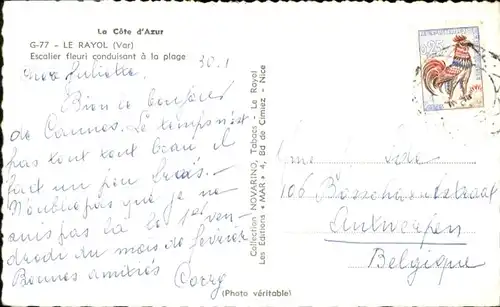 La Côte d'Azur
G-77 - LE RAYOL (Var)
Escalier fleuri conduisant à la plage
30.1
Chère Juliette
Bien le bonjour
de Cannes. Le temps n'est
pas tout tout beau il
fait un peu frais.
N'oublie pas que je ne
suis pas là le 1er ven-
dredi du mois de février
Bonnes amitiés
(Photo véritable)
Collection NOVARINO, Tabacs - Le Rayol
Les Éditions "MAR" 4, Bd de Cimiez - Nice
0,25
Mme
106 Bosschaertstraat
Antwerpen
Belgique